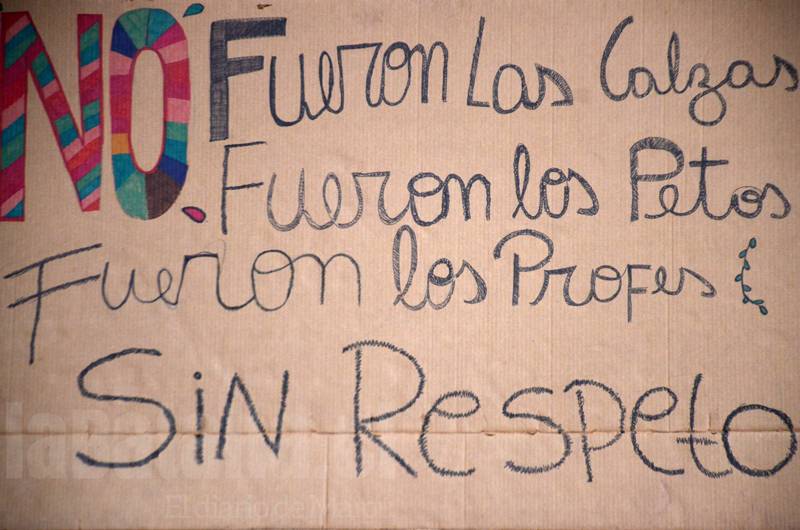 NO Fueron Las Calzas
Fueron los Petos
Fueron los Profes
SiN Respeto
El diario de